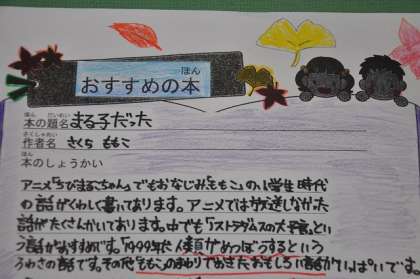 おすすめの本
ほん
本の題名 まる子だった
ほん だいめい
作者名 さくら ももこ
さくしゃめい
本のしょうかい
ほん
アニメ「ちびまるこちゃん」でもおなじみ、ももこの小学生時代
の話がくわしく書いてあります。アニメでは放送しなかった
話がたくさんかいてあります。中でも「ノストラダムスの大予言」とい
う話がおすすめです。「1999年に人類がめつぼうする」という
うわさの話です。その他、ももこのまわりでおきたおもしろい話がいっぱいで